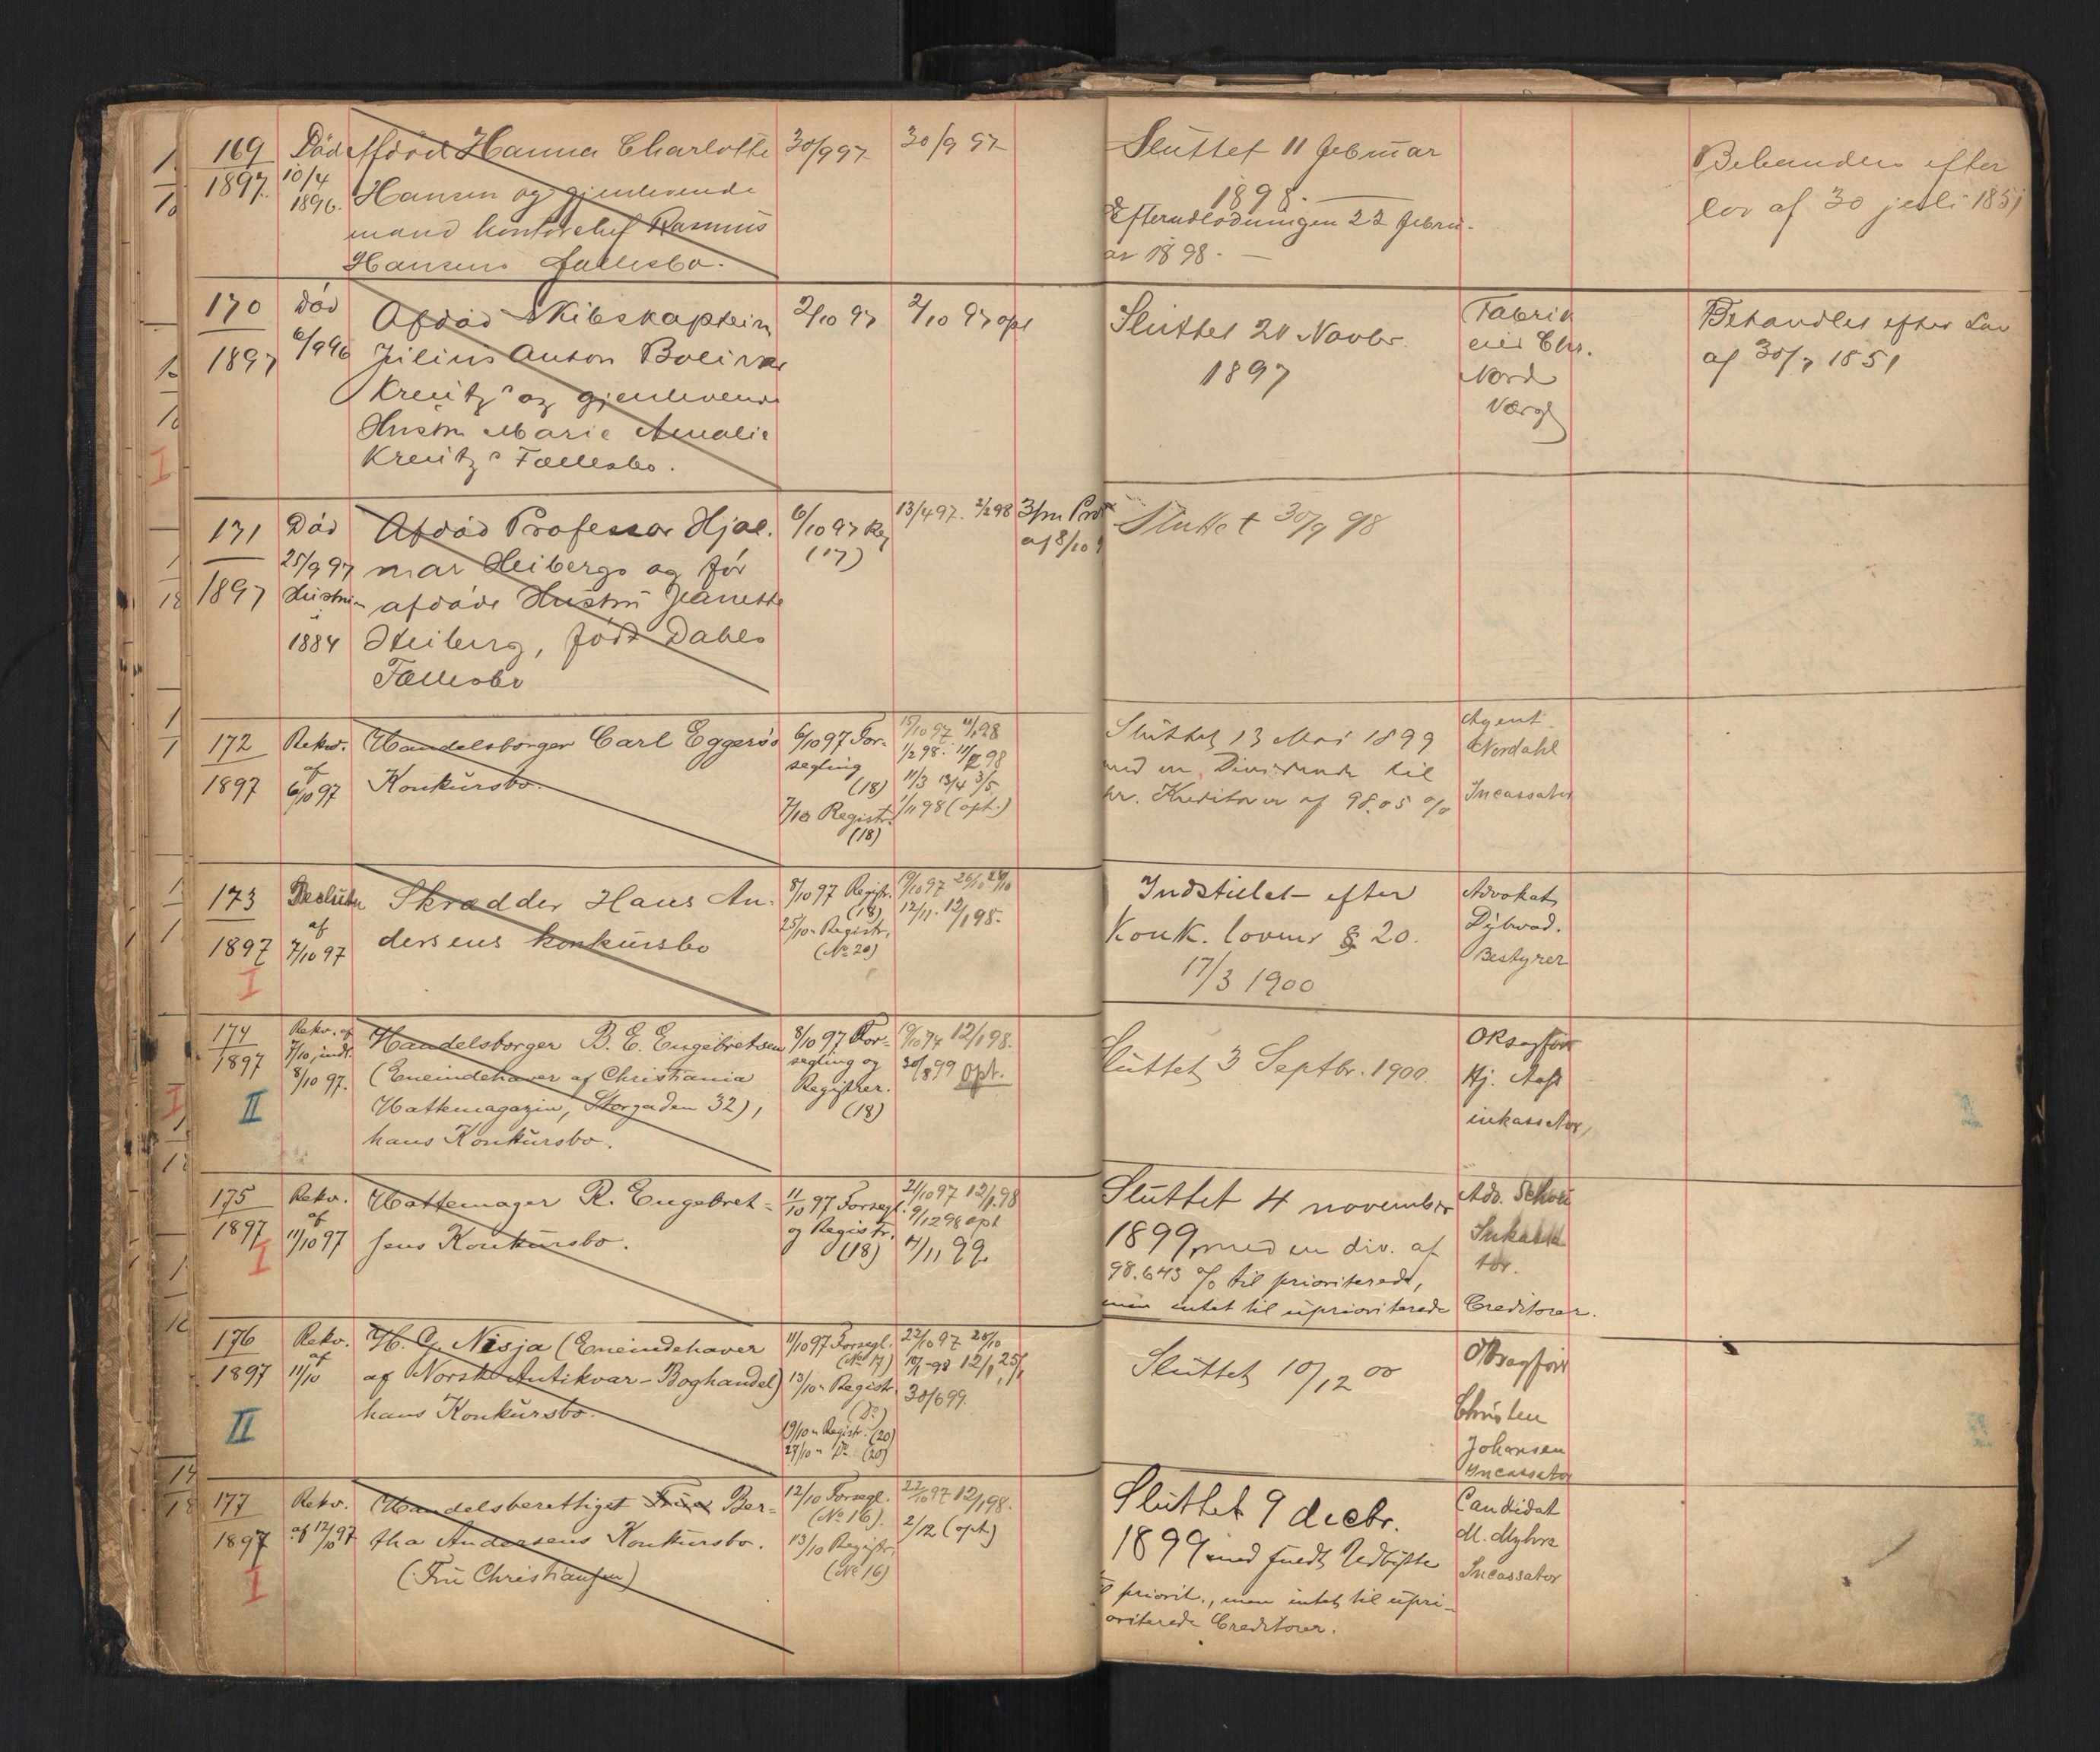 169
1897.
Död
10/4
1896.
Afdöd Hanna Charlotte
Hansen og gjenlevende
mand kontorchef Rasmus
Hansens Fællesbo.
30/9 97
30/9 97
Sluttet 11 februar
1898.
Efterudlodningen 22 febru-
ar 1898.
Behandles efter
lov af 30 juli 1851
170
1897
Död
6/9 96
Afdöd Skibskaptein
Julius Anton Bolivar
Kreutz' og gjenlevende
Hustru Marie Amalie
Kreutz' Fællesbo.
2/10 97
2/10 97 opt
Sluttet 20 Novbr.
1897
Fabrik
eier Chr.
Nord
Værge
Behandles efter Lov
af 30/7 1851
171
1897
Död
25/9 97
Hustruen
1884
Afdöd Professor Hjal-
mar Heibergs og för
afdöde Hustru Jeanette
Heiberg, född Dahls
Fællesbo
6/10 97 Reg
(17)
13/4 97. 2/2 98
3/m Prok
af 8/10 9
Sluttet 30/9 98
172
1897
Rekv.
af
6/10 97
Handelsborger Carl Eggers's
Konkursbo.
6/10 97 For-
segling
(18)
7/10 Registr.
(18)
15/10 97
1/2 98. 11/2 98
11/3 13/4 3/5
1/11 98 (opt.)
Sluttet 13 Mai 1899
med en Dividende til
pr. Kreditorer af 98.05 %
Agent
Nordahl
Incassator
173
1897
I
Beslutn
af
7/10 97
Skrædder Hans An-
dersens konkursbo
8/10 97 Registr.
(18)
25/10 " Registr.
(No 20)
19/10 97 26/10 28/10
12/11. 12/1 98.
Indstillet efter
Konk. lovens § 20.
17/3 1900
Advokat
Dybwad.
Bestyrer
174
1897
II
Rekv. af
7/10, indl.
8/10 97.
Handelsborger B. E. Engebretsen
(Eneindehaver af Christiania
Hattemagazin, Storgaden 32),
hans Konkursbo.
8/10 97 For-
segling og
Registrer.
(18)
19/10 97 12/1 98.
30/8 99 opt.
Sluttet 3 Septbr. 1900.
ORsagför
Hj.
inkassator
175
1897
I
Rekv.
af
11/10 97
Hattemager R. Engebret-
sens Konkursbo.
11/10 97 Forsegl.
og Registr.
(18)
21/10 97 12/1 98
9/12 98 opt
4/11 99.
Sluttet 4 november
1899, med en div. af
98.643 % til prioriterede,
men intet til uprioriterede Creditorer.
Adv.
Inkassa
tor.
176
1897
II
Rekv.
af
11/10
H. G. Nisja (Eneindehaver
af Norsk Antikvar-Boghandel)
hans Konkursbo.
11/10 97 Forsegl.
(No 17)
13/10 " Registr.
(Do)
19/10 " Registr. (20)
27/10 " Do (20)
22/10 97 28/10
12/1
30/6 99.
Sluttet 10/12 00
ORsagför
Christen
Johansen
Incassator
177
1897
I
Rekv.
af 12/10 97
Handelsberettiget Frue Ber-
tha Andersens Konkursbo.
(Fru Christiansen)
12/10 Forsegl.
(No 16).
13/10 Registr.
(No 16)
22/10 97 12/1 98.
2/12 (opt.)
Sluttet 9 decbr.
1899 med fuldt Udbytte
til priorit., men intet til upri-
oriterede Creditorer.
Candidat
M. Myhre
Incassator